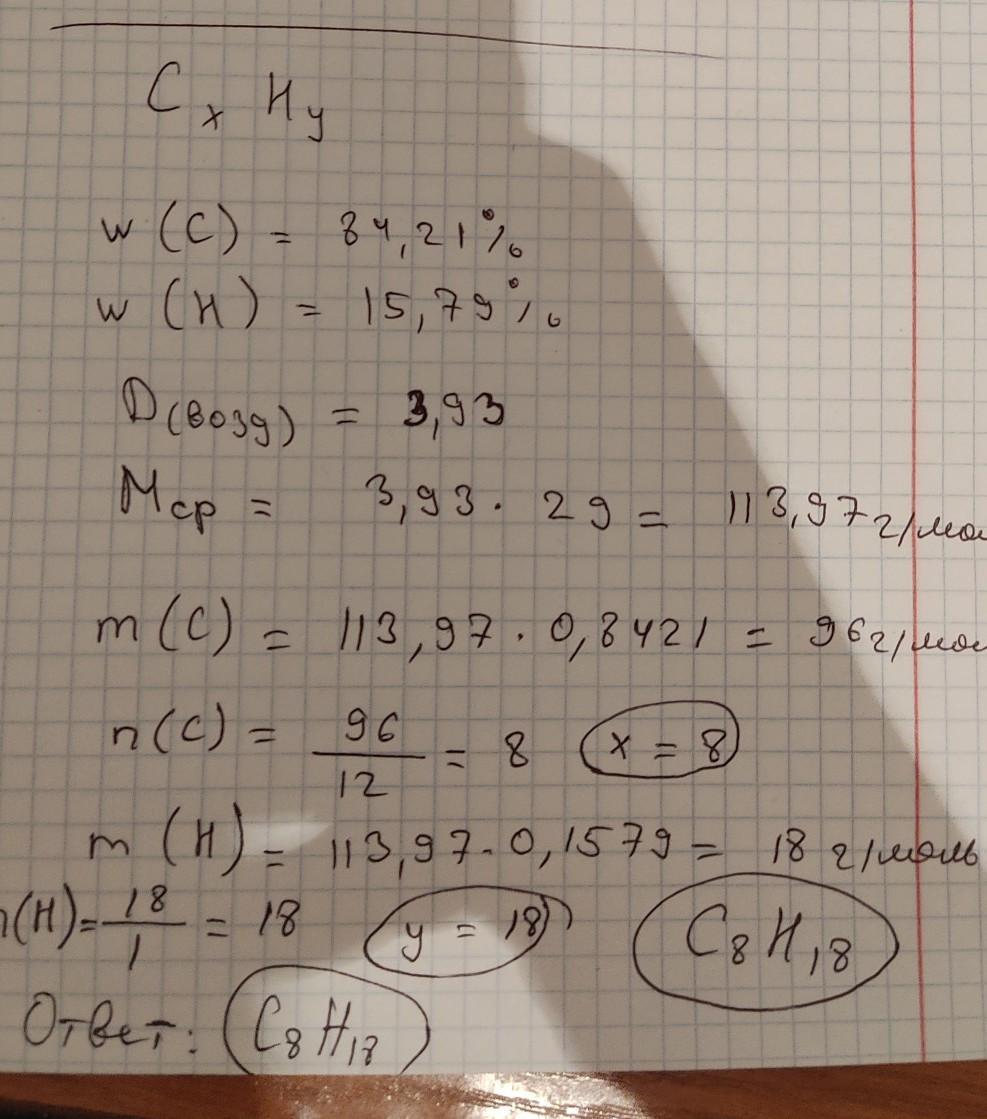 CxHy
w (C) = 84,21%
w (H) = 15,79%
D(возд) = 3,93
Mср = 3,93 · 29 = 113,97 г/мол
m (C) = 113,97 · 0,8421 = 96 г/мол
n(C) = 96/12 = 8 x = 8
m (H) = 113,97 · 0,1579 = 18 г/моль
n(H) = 18/1 = 18 y = 18 C8H18
Ответ: C8H18